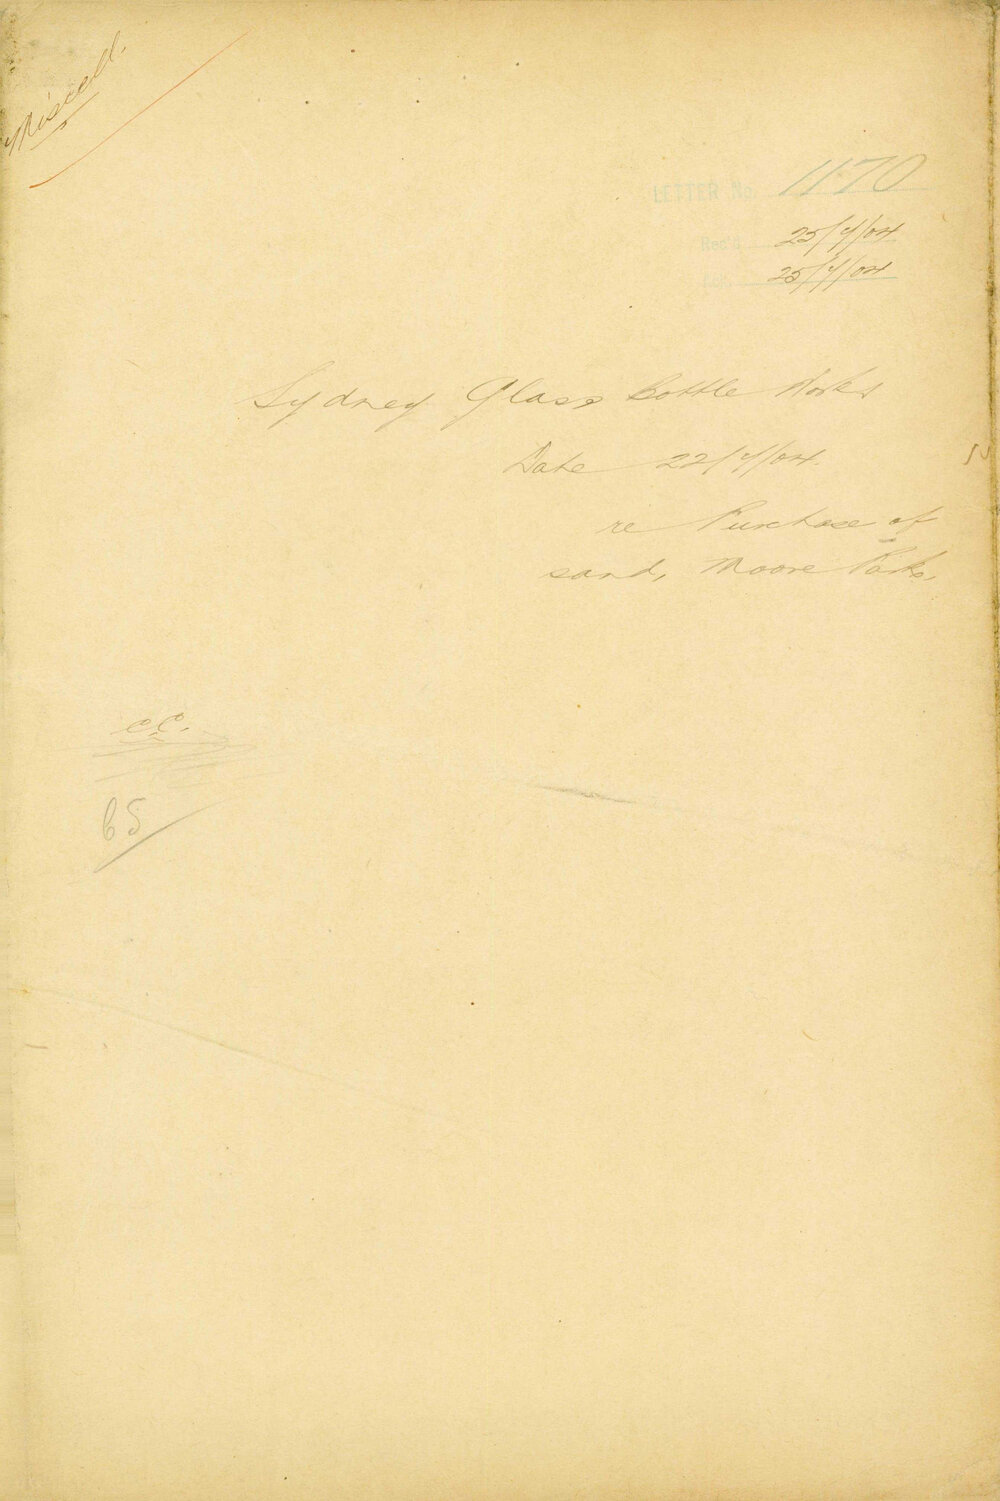 Miscell.
LETTER No. 1170
Rec'd 25/7/04
25/7/04
Sydney Glass Bottle Works
Date 22/7/04.
re Purchase of
sand, Moore Park.
C.C.
65